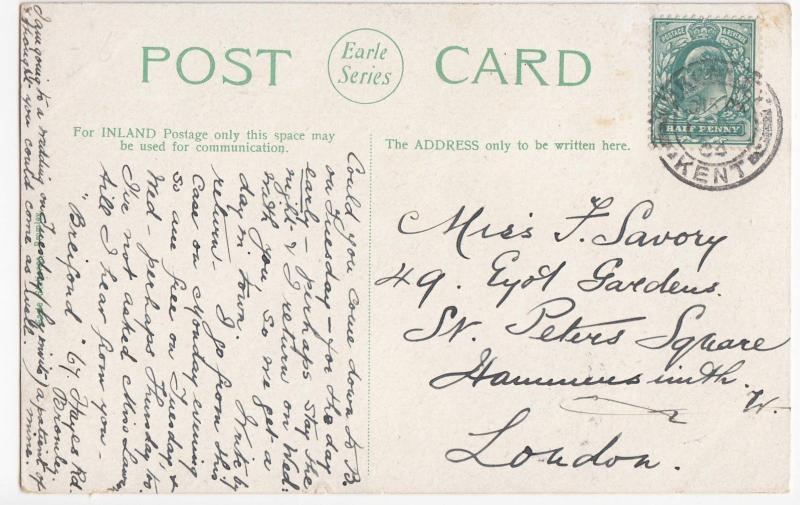 POST CARD
Earle
Series
POSTAGE & REVENUE
HALF PENNY
KENT
For INLAND Postage only this space may
be used for communication.
The ADDRESS only to be written here.
Could you come down to B.
on Tuesday - for the day
early - perhaps stay the
night & I return on Wed:
with you so we get a
day in town. Write by
return - I go from this
Case on Monday evening
so am free on Tuesday &
Wed - perhaps Thursday to.
I've not asked Miss
till I hear from you -
"Breifond" 67 Hayes Rd.
Bromley.
I am going to a wedding on Tuesday (by invite) a patient of mine
& thought you could come as well.
Miss F. Savory
49. Eyot Gardens.
St. Peters Square
Hammersmith.
W.
London.